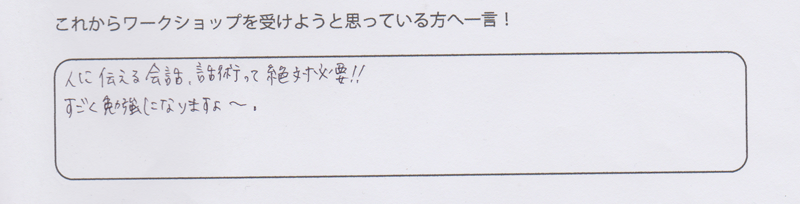 これからワークショップを受けようと思っている方へ一言！
人に伝える会話、話術って絶対必要!!
すごく勉強になりますよ〜。